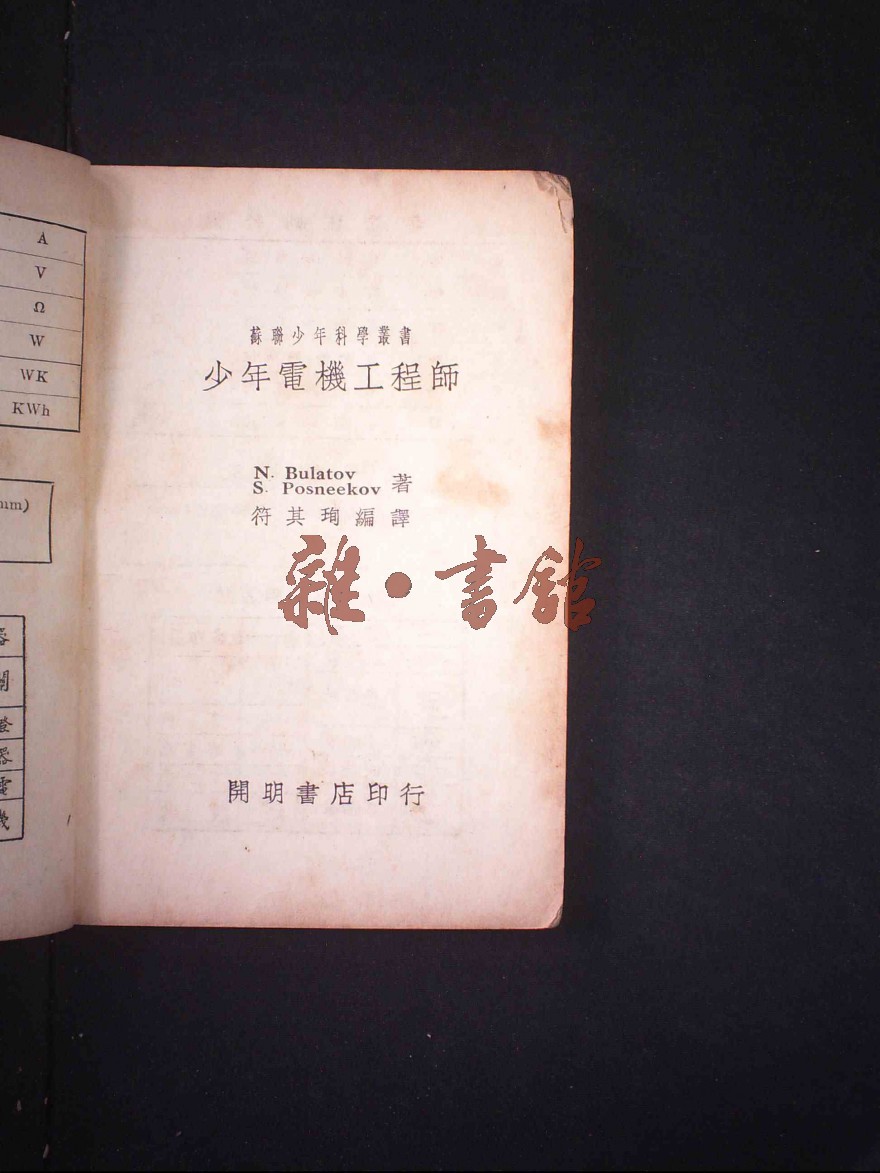 A
V
Ω
W
WK
KWh
mm)
器
燈
器
電
機
蘇聯少年科學叢書
少年電機工程師
N. Bulatov
S. Posneekov 著
符其珣編譯
雜·書館
開明書店印行